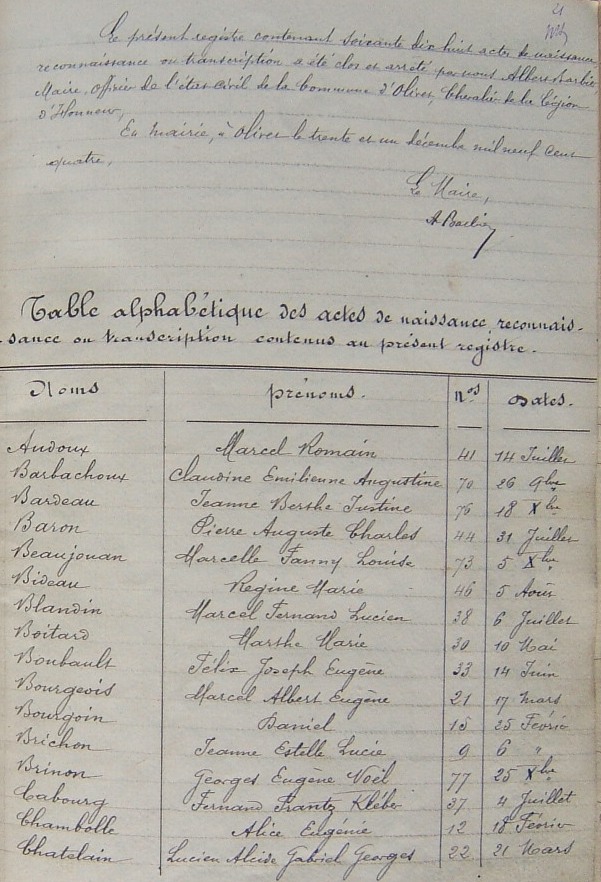 21
Le présent registre contenant soixante dix huit actes de naissance
reconnaissance ou transcription a été clos et arrêté par nous Albert Barbier
Maire, officier de l'état civil de la Commune d'Olivet, Chevalier de la Légion
d'Honneur,
En mairie, à Olivet le trente et un décembre mil neuf cent
quatre,
Le Maire,
A Barbier
Table alphabétique des actes de naissance, reconnais-
sance ou transcription contenus au présent registre.
Noms prénoms. nos Dates.
Audoux Marcel Romain 41 14 Juillet
Barbachoux Claudine Emilienne Augustine 70 26 9bre
Bardeau Jeanne Berthe Justine 76 18 Xbre
Baron Pierre Auguste Charles 44 31 Juillet
Beaujouan Marcelle Fanny Louise 73 5 Xbre
Bideau Regine Marie 46 5 Août
Blandin Marcel Fernand Lucien 38 6 Juillet
Boitard Marthe Marie 30 10 Mai
Boubault Félix Joseph Eugène 33 14 Juin
Bourgeois Marcel Albert Eugène 21 17 Mars
Bourgoin Daniel 15 25 Février
Bréchon Jeanne Estelle Lucie 9 6 "
Brinon Georges Eugène Noël 77 25 Xbre
Cabourg Fernand Frantz Kléber 37 4 Juillet
Chambolle Alice Eugénie 12 18 Février
Chatelain Lucien Alcide Gabriel Georges 22 21 Mars